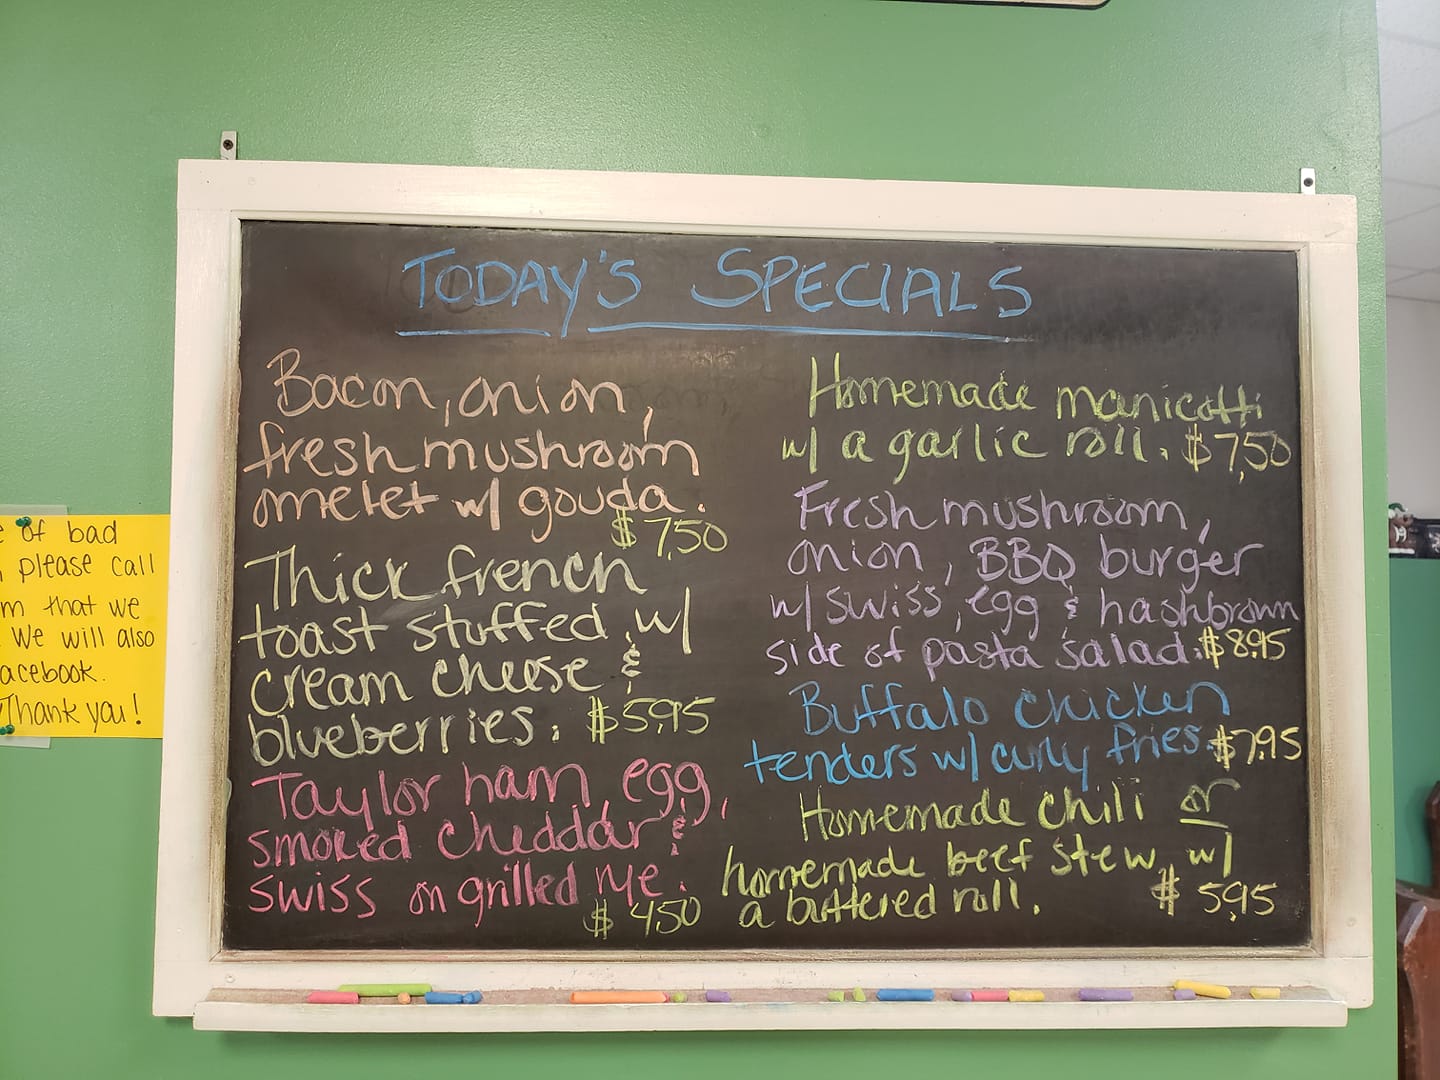 TODAY'S SPECIALS
Bacon, onion,
fresh mushroom
omelet w/ gouda.
$7,50
Thick french
toast stuffed w/
cream cheese &
blueberries. $5,95
Taylor ham, egg,
smoked cheddar &
swiss on grilled rye.
$4,50
Homemade manicotti
w/ a garlic roll. $7,50
Fresh mushroom,
onion, BBQ burger
w/ swiss, egg & hashbrown
side of pasta salad. $8,95
Buffalo chicken
tenders w/ curly fries. $7,95
Homemade chili or
homemade beef stew, w/
a buttered roll. $5,95
of bad
please call
that we
We will also
acebook.
Thank you!